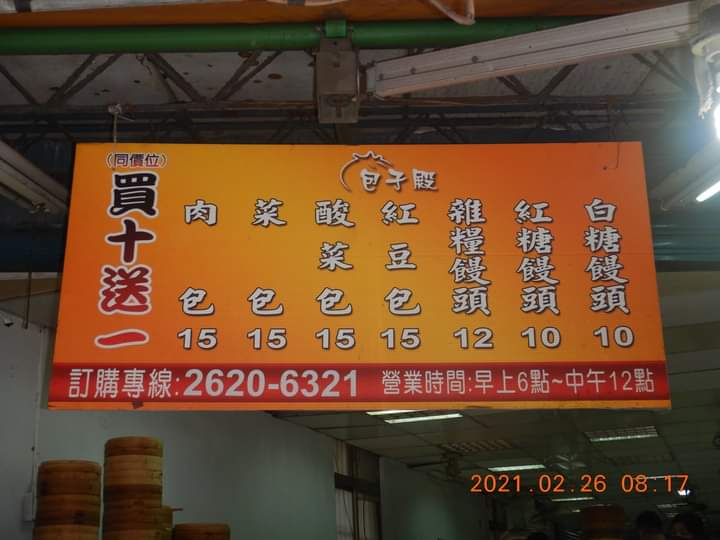 (同價位)
買十送一
包子殿
肉包 15
菜包 15
酸菜包 15
紅豆包 15
雜糧饅頭 12
紅糖饅頭 10
白糖饅頭 10
訂購專線:2620-6321 營業時間:早上6點~中午12點
2021.02.26 08:17